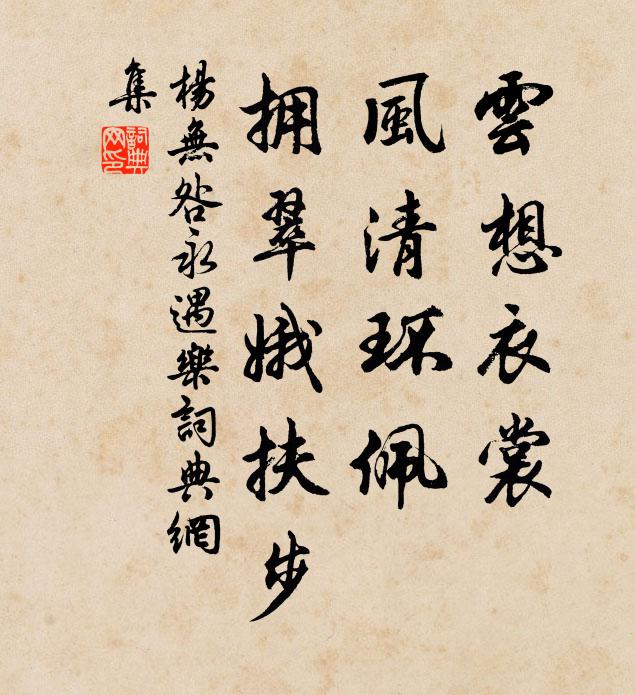 雲想衣裳
風清环佩
拥翠娥扶步
楊無咎永遇樂詞典網
集
詞典
网印